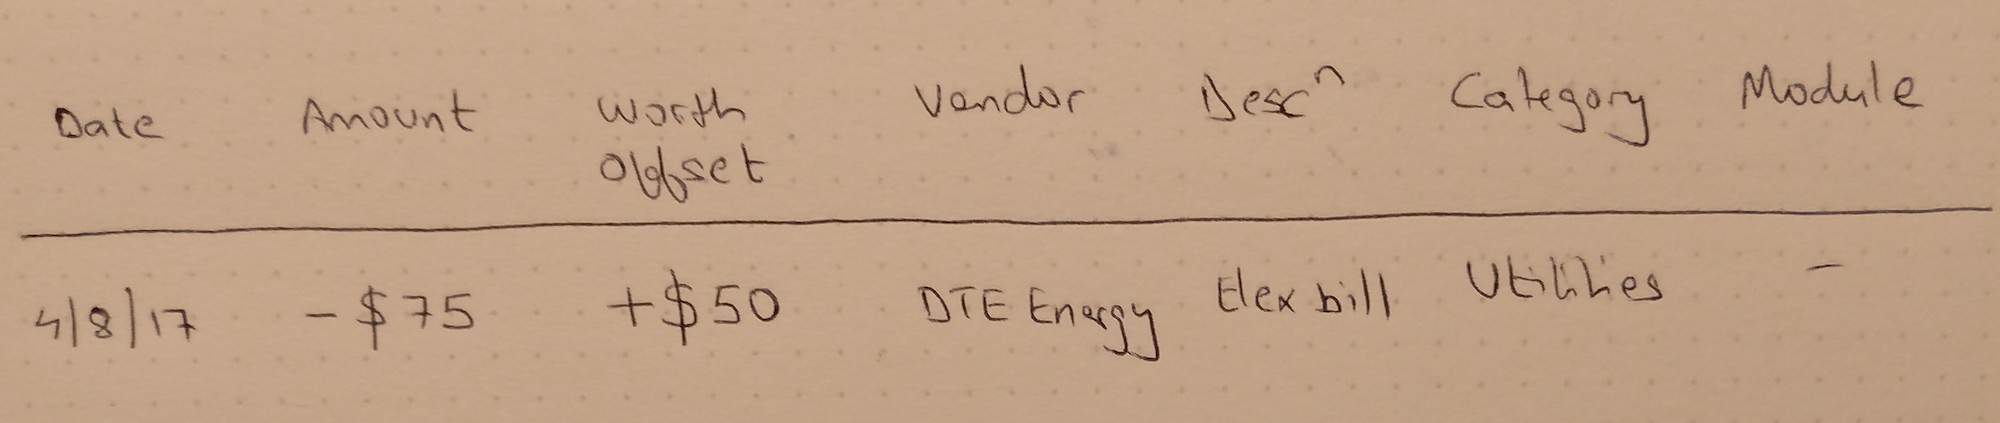 Date Amount Worth Offset Vendor Descⁿ Category Module
4/8/17 -$75 +$50 DTE Energy Elex bill Utilities -